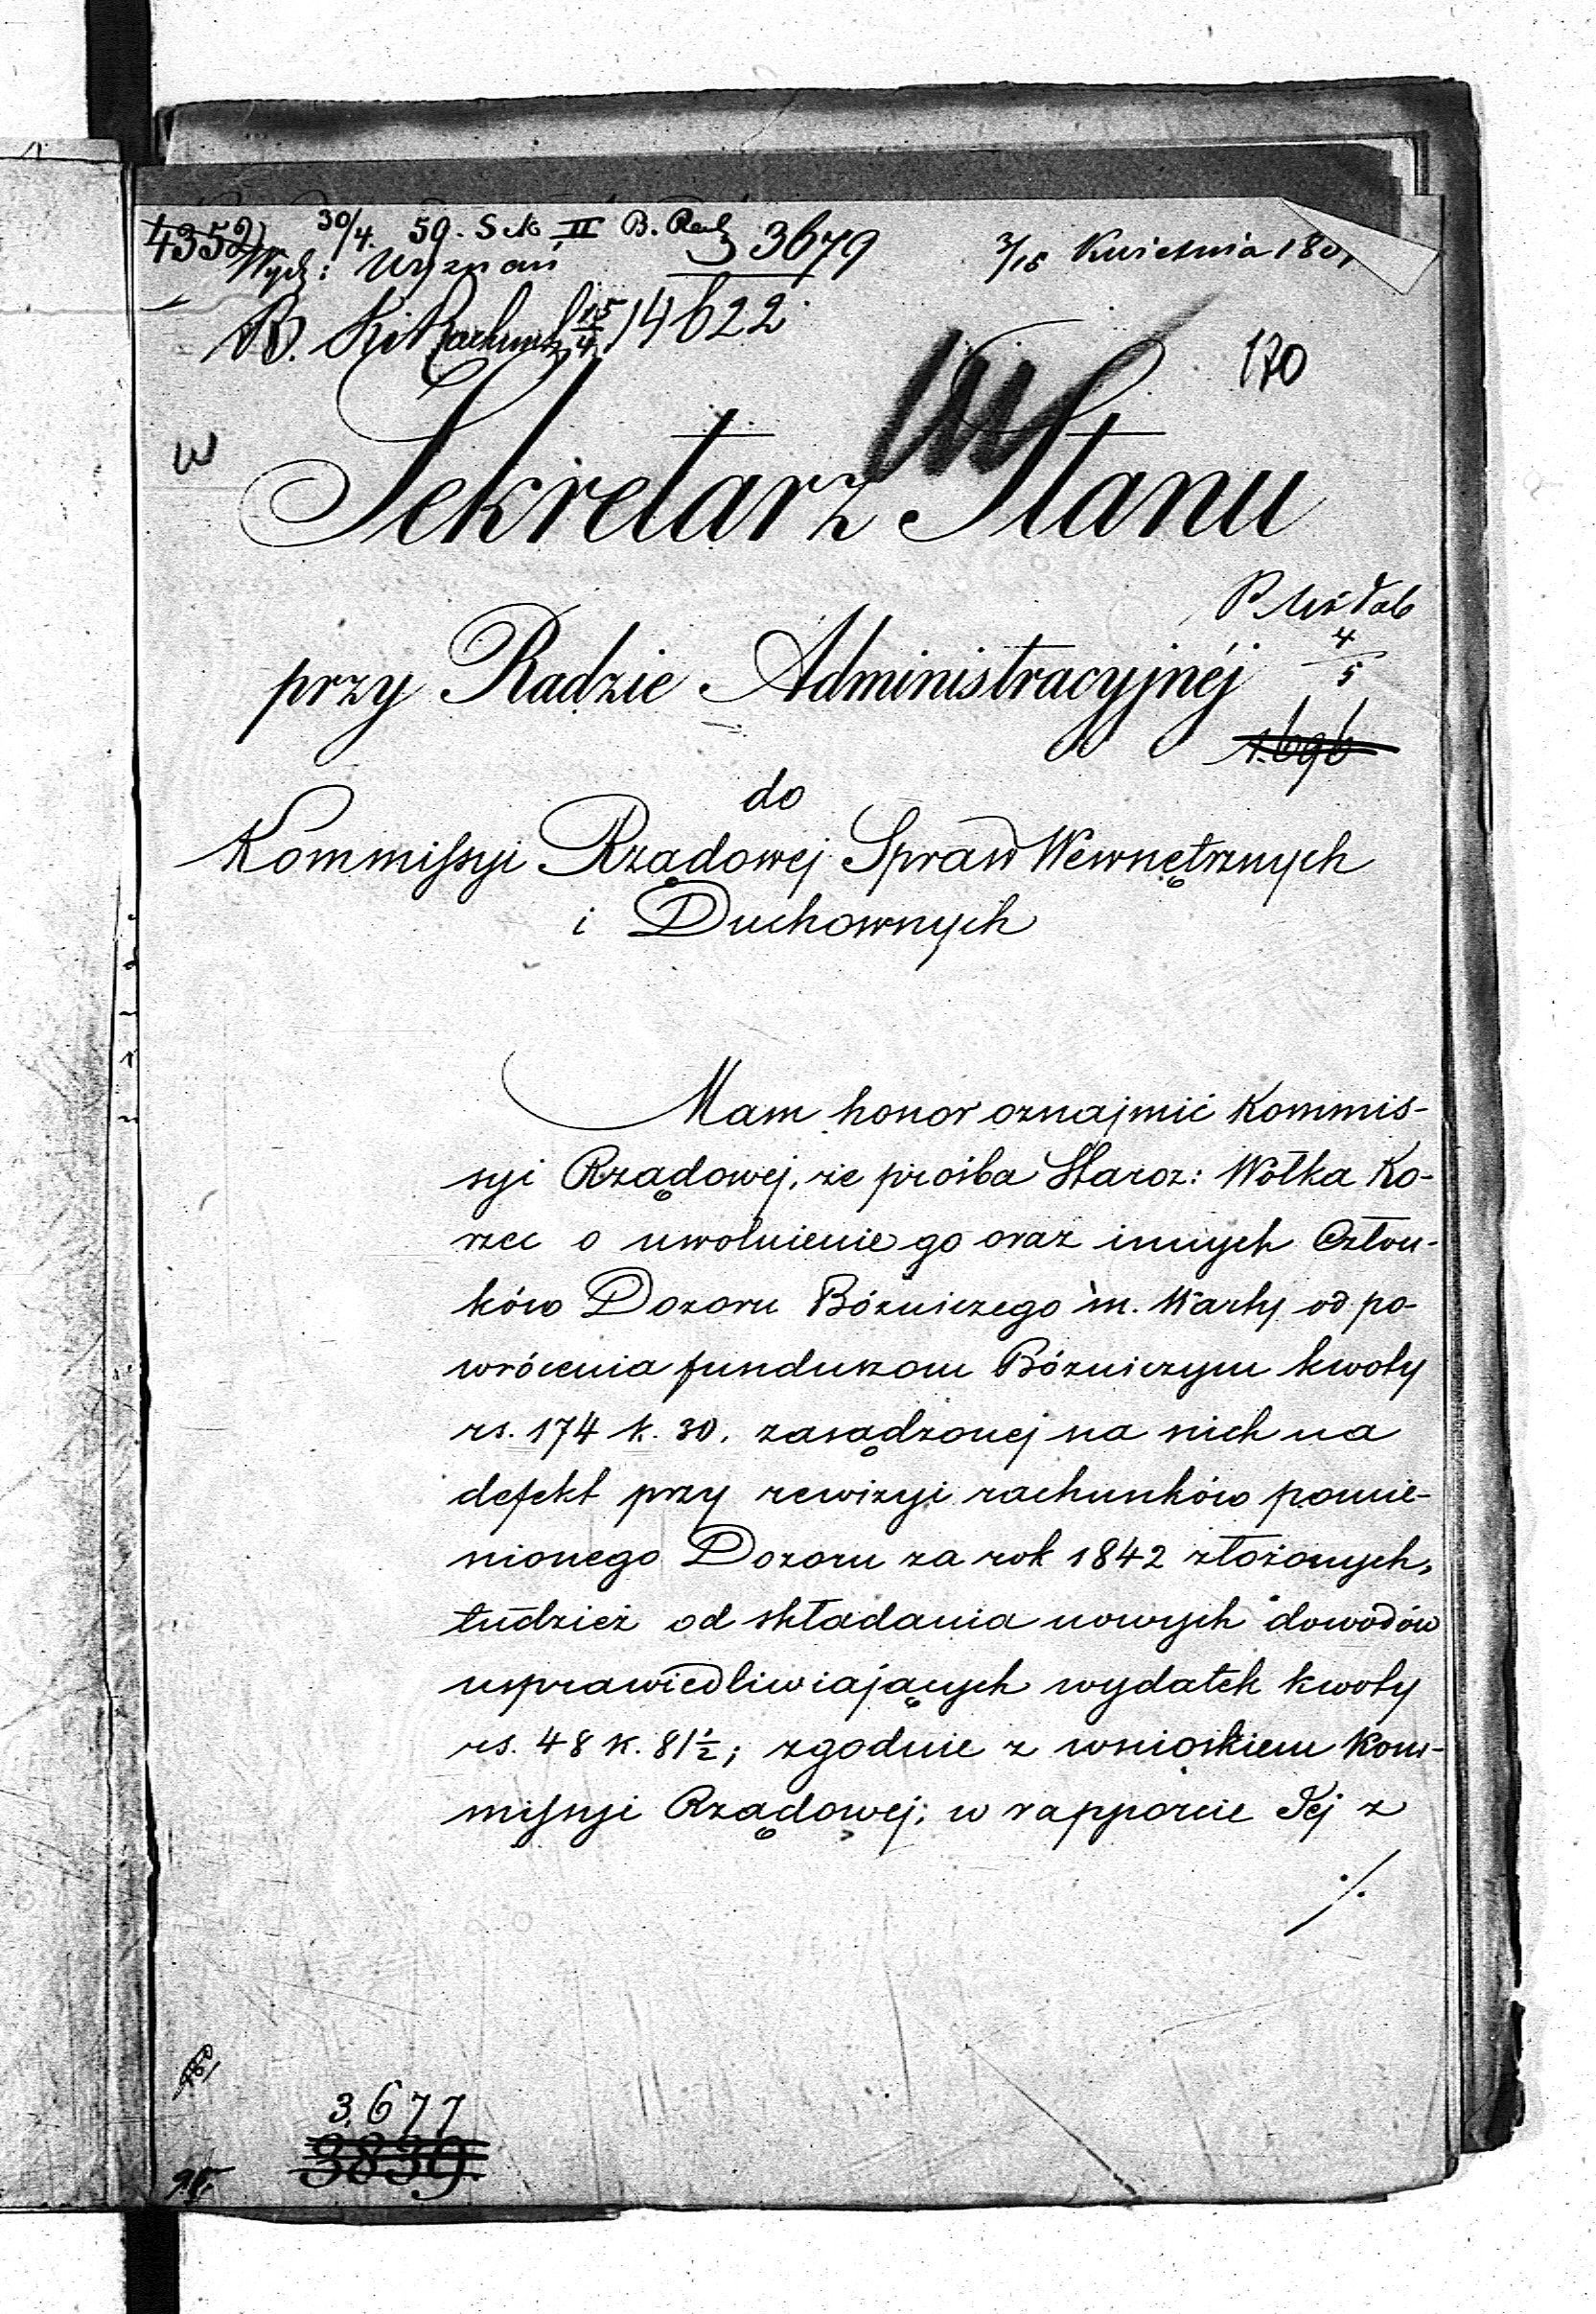 4352
30/4. 59. Sek II B. Rach 3679
3/15 Kwietnia 18
Wydz: Wyznań
B. 15/4 14622
170
w
Sekretarz Stanu
4/5
przy Radzie Administracyjnéj
1.696
do
Kommissyi Rządowej Spraw Wewnętrznych
i Duchownych
Mam honor oznajmić Kommis-
syi Rządowej, że prośba Staroz: Wolka Ko-
rzec o uwolnienie go oraz innych Człon-
ków Dozoru Bóżniczego m. Warty od po-
wrócenia funduszom Bóżniczym kwoty
rs. 174 k. 30. zasądzonej na nich na
defekt przy rewizyi rachunków pomie-
nionego Dozoru za rok 1842 złożonych,
tudzież od składania nowych dowodów
usprawiedliwiających wydatek kwoty
rs. 48 k. 81½; zgodnie z wnioskiem Kom-
missyi Rządowej; w rapporcie Jej z
./.
3.677
3839.